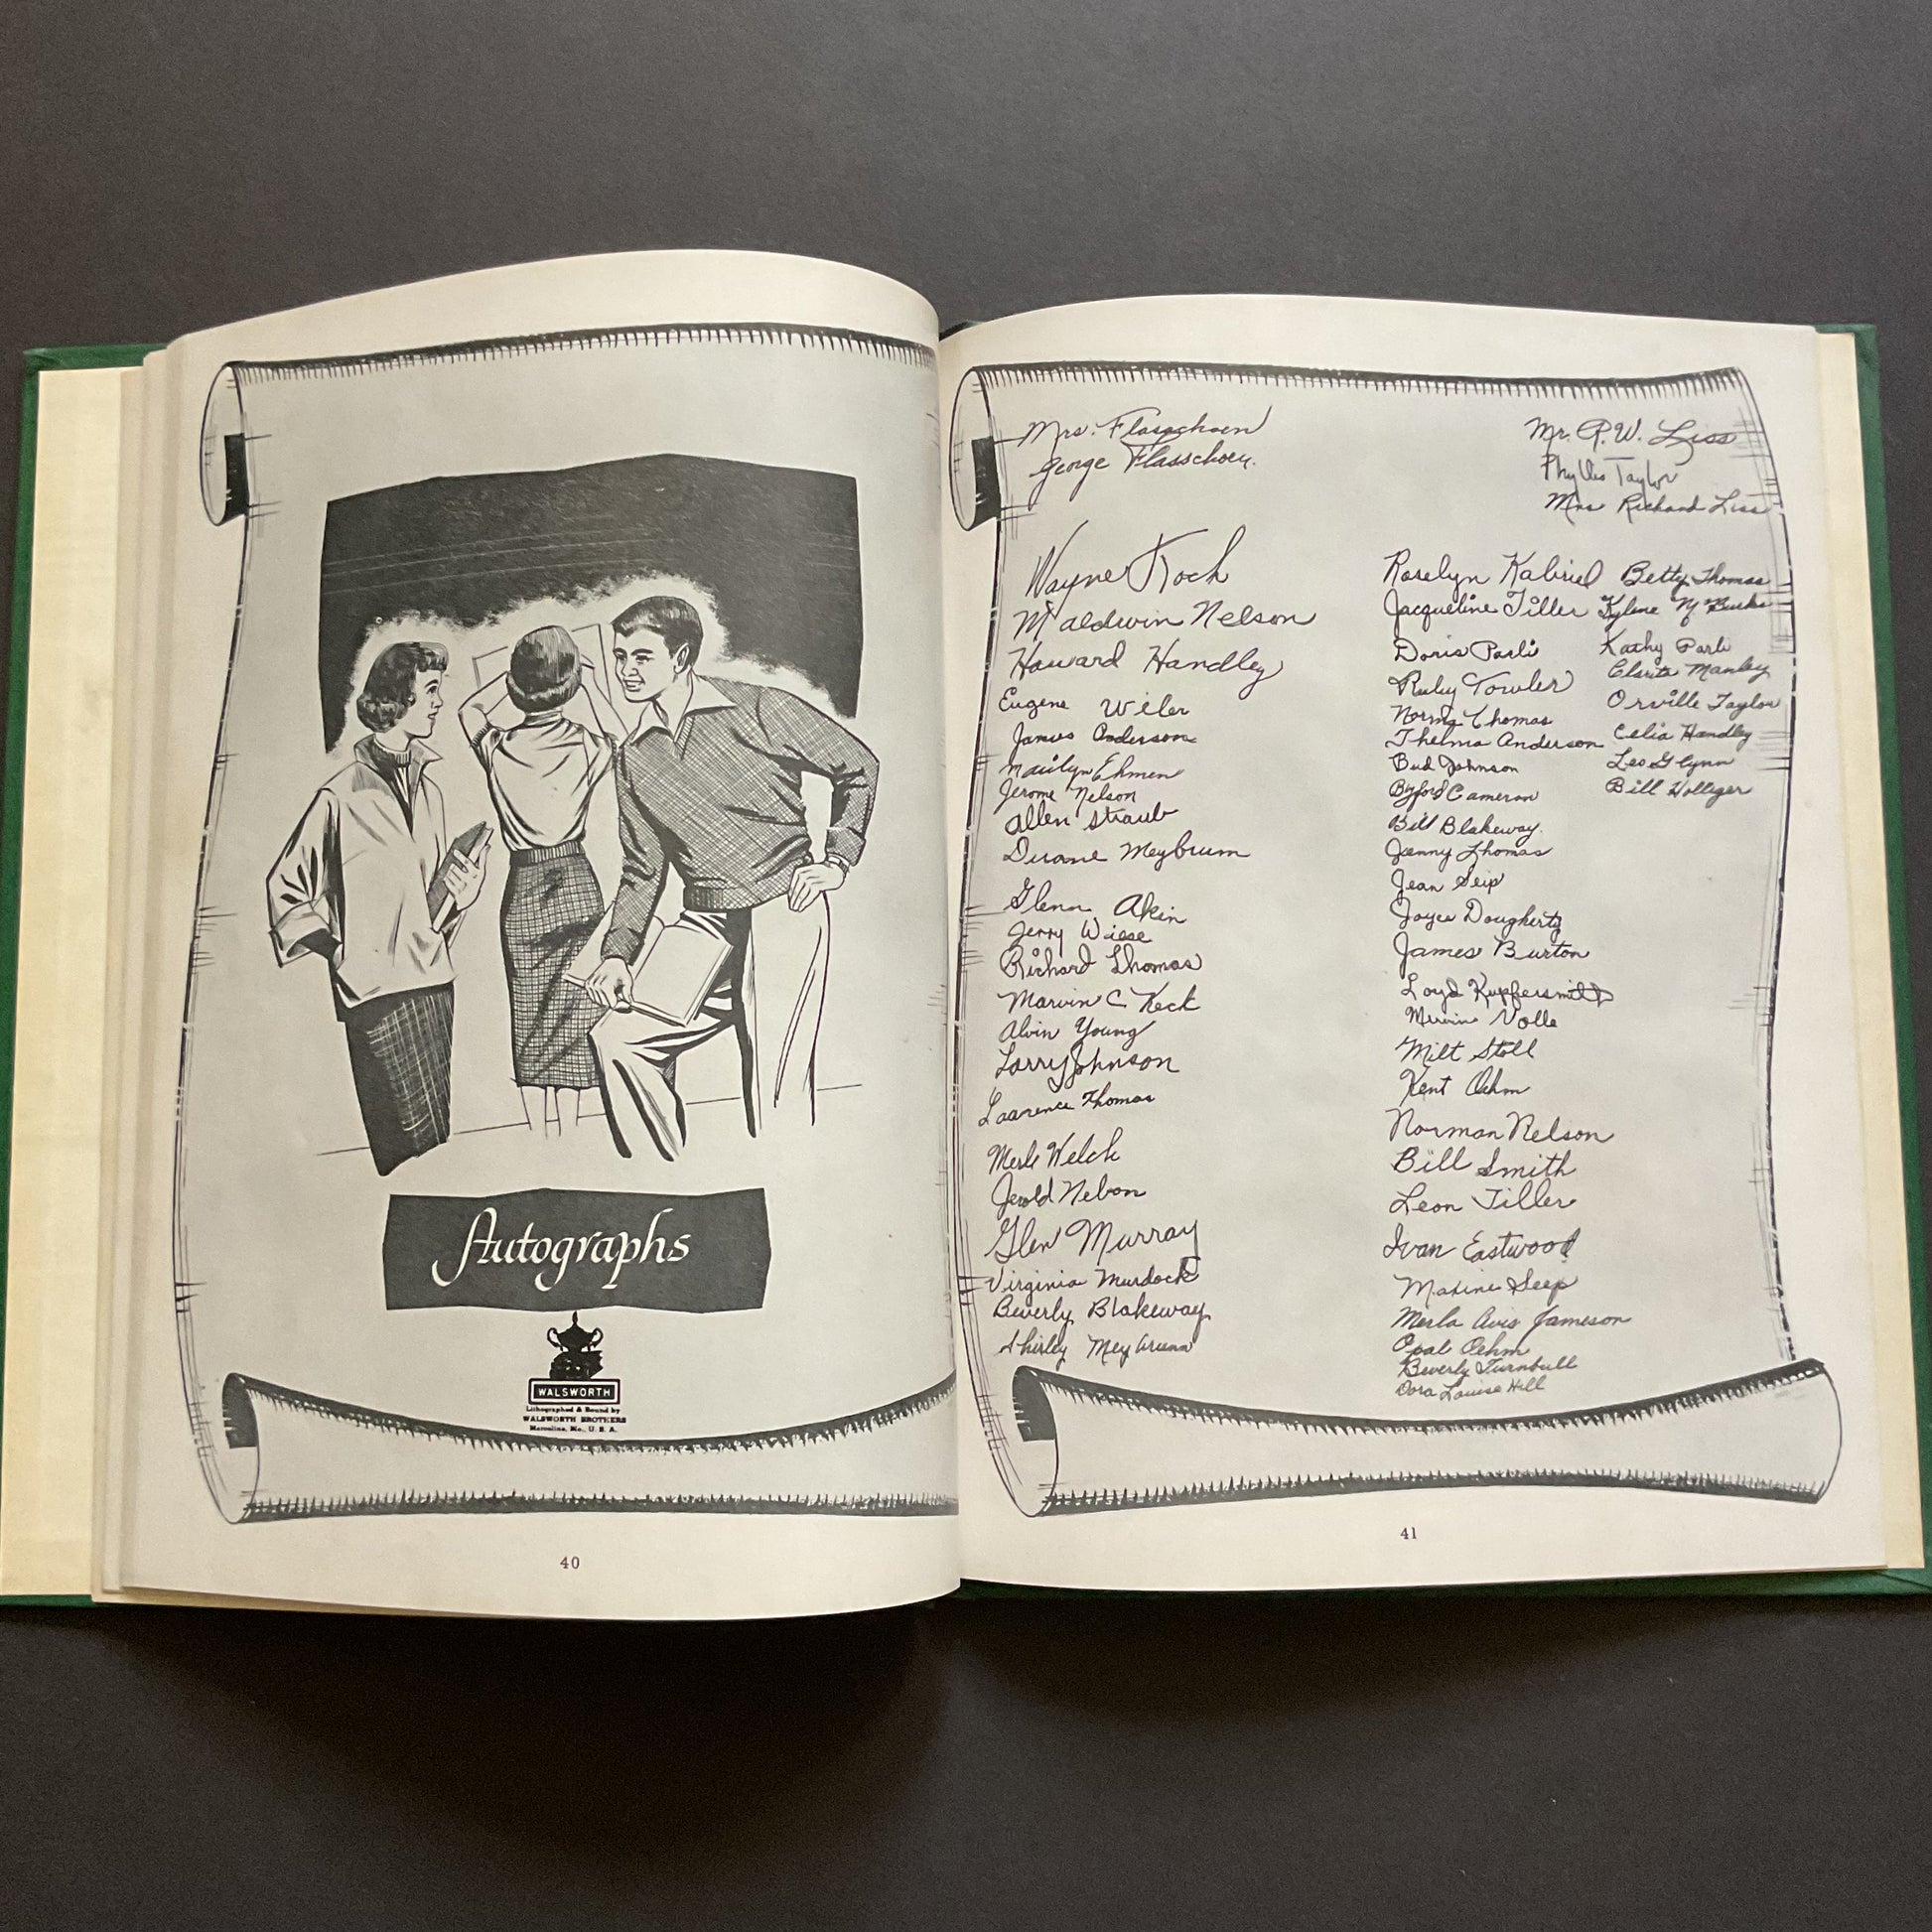 Autographs
WALSWORTH
Lithographed & Bound by
WALSWORTH BROTHERS
Marceline, Mo., U. S. A.
40
Mrs. Flasschoen
George Flasschoen.
Mr. R. W. Liss
Phyllis Taylor
Mrs Richard Liss
Wayne Koch
Maldwin Nelson
Howard Handley
Eugene Wiler
James Anderson
Marilyn Ehmen
Jerome Nelson
Allen Straub
Duane Meybrum
Glenn Akin
Jerry Wiese
Richard Thomas
Marvin C Keck
Alvin Young
Larry Johnson
Lawrence Thomas
Merle Welch
Jerold Nelson
Glen Murray
Virginia Murdock
Beverly Blakeway
Shirley
Roselyn Kabriel
Jacqueline Tiller
Doris Parli
Ruby Towler
Norma Thomas
Thelma Anderson
Bud Johnson
Byford Cameron
Bill Blakeway.
Jenny Thomas
Jean Seip
Joyce Dougherty
James Burton
Loyd Kupfersmith
Mervin Nolle
Milt Stoll
Kent Oehm
Norman Nelson
Bill Smith
Leon Tiller
Ivan Eastwood
Maxine Seip
Merla Avis Jameson
Opal Oehm
Beverly Turnbull
Dora Louise Hill
Betty Thomas
Kathy Parli
Manley
Orville Taylor
Celia Handley
Leo Glynn
Bill Holliger
41